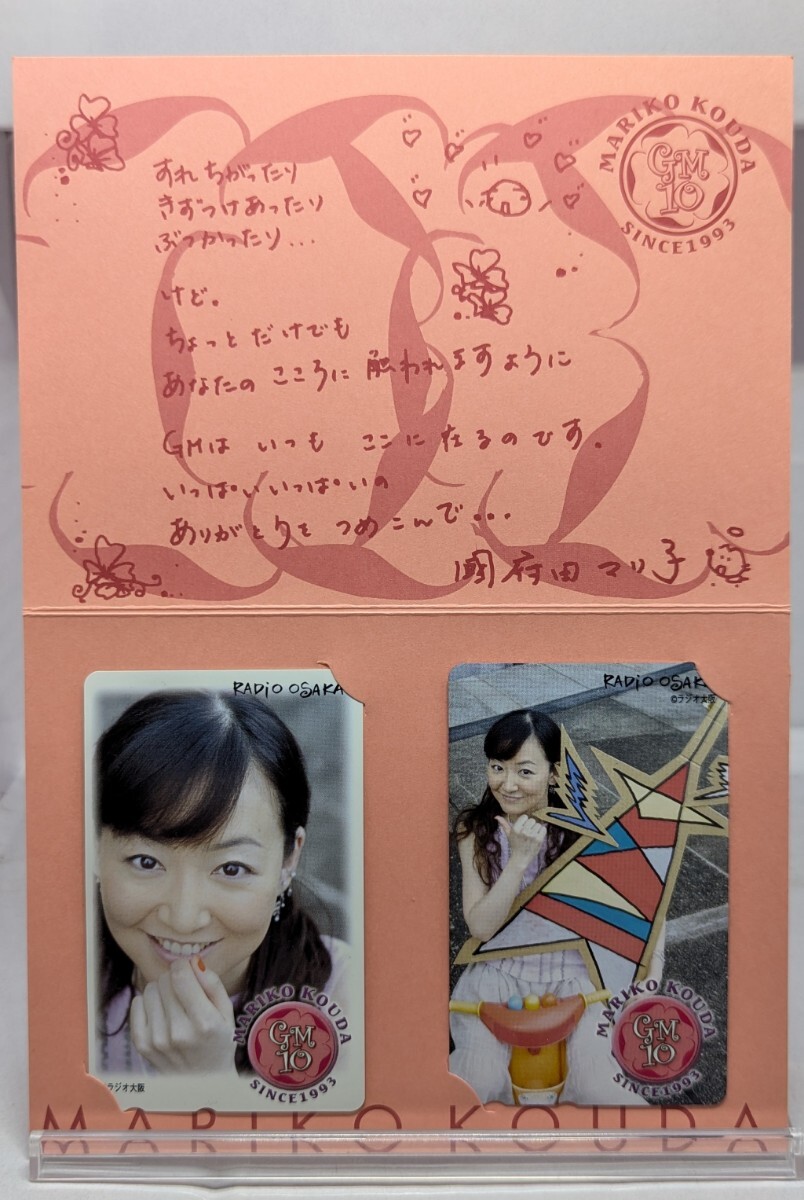 MARIKO KOUDA
GM
10
SINCE1993
すれちがったり
きずつけあったり
ぶつかったり...
けど。
ちょっとだけでも
あなたの こころに 触われますように
GMは いつも ここに在るのです。
いっぱいいっぱいの
ありがとうを つめこんで...
國府田マリ子
RADiO OSAKA
MARIKO KOUDA
GM
10
SINCE1993
ラジオ大阪
RADiO OSAKA
©ラジオ大阪
MARIKO KOUDA
GM
10
SINCE1993
MARIKO KOUDA